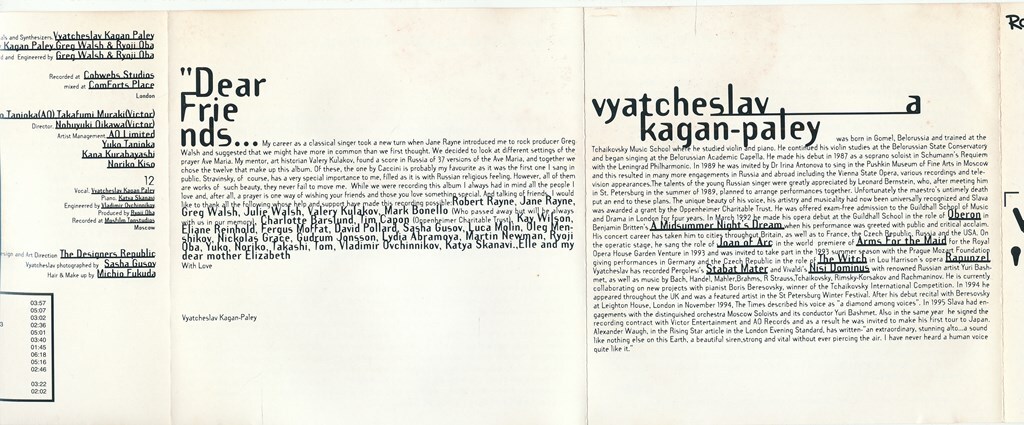 als and Synthesizers. Vyatcheslav Kagan Paley
Kagan Paley Greg Walsh & Ryoji Oba
d and Engineered by Greg Walsh & Ryoji Oba
Recorded at Cobwebs Studios
mixed at ComForts Place
London
o Tanioka(AO) Takafumi Muraki(Victor)
Director. Nobuyuki Oikawa(Victor)
Artist Management. AO Limited
Yuko Tanioka
Kana Kurabayashi
Noriko Kiso
12
Vocal. Vyatcheslav Kagan Paley
Piano. Katya Skanavi
Engineered by Vladimir Ovchinnikov
Produced by Ryoji Oba
Recorded at Mosfilm Tonstudios
Moscow
esign and Art Direction The Designers Republic
Vyatcheslav photographed by Sasha Gusov
Hair & Make up by Michio Fukuda
03:57
05:07
03:02
02:36
05:01
03:40
01:45
06:18
05:16
02:46
03:22
02:02
"Dear
Frie
nds... My career as a classical singer took a new turn when Jane Rayne introduced me to rock producer Greg
Walsh and suggested that we might have more in common than we first thought. We decided to look at different settings of the
prayer Ave Maria. My mentor, art historian Valery Kulakov, found a score in Russia of 37 versions of the Ave Maria, and together we
chose the twelve that make up this album. Of these, the one by Caccini is probably my favourite as it was the first one I sang in
public, Stravinsky, of course, has a very special importance to me, filled as it is with Russian religious feeling. However, all of them
are works of such beauty, they never fail to move me. While we were recording this album I always had in mind all the people I
love and, after all, a prayer is one way of wishing your friends and those you love something special. And talking of friends, I would
like to thank all the following whose help and support have made this recording possible. Robert Rayne, Jane Rayne,
Greg Walsh, Julie Walsh, Valery Kulakov, Mark Bonello (Who passed away but will be always
with us in our memory), Charlotte Barslund, Jim Capon (Oppenheimer Charitable Trust), Kay Wilson,
Eliane Reinhold, Fergus Moffat, David Pollard, Sasha Gusov, Luca Molin, Oleg Men-
shikov, Nickolas Grace, Gudrum Jonsson, Lydia Abramoya, Martin Newman, Ryoji
Oba, Yuko, Noriko, Takashi, Tom, Vladimir Ovchinnikov, Katya Skanavi., Elle and my
dear mother Elizabeth
With Love
Vyatcheslav Kagan-Paley
vyatcheslav a
kagan-paley was born in Gomel, Belorussia and trained at the
Tchaikovsky Music School where he studied violin and piano. He continued his violin studies at the Belorussian State Conservatory
and began singing at the Belorussian Academic Capella. He made his debut in 1987 as a soprano soloist in Schumann's Requiem
with the Leningrad Philharmonic. In 1989 he was invited by Dr Irina Antonova to sing in the Pushkin Museum of Fine Arts in Moscow
and this resulted in many more engagements in Russia and abroad including the Vienna State Opera, various recordings and tele-
vision appearances.The talents of the young Russian singer were greatly appreciated by Leonard Bernstein, who, after meeting him
in St. Petersburg in the summer of 1989, planned to arrange performances together. Unfortunately the maestro's untimely death
put an end to these plans. The unique beauty of his voice, his artistry and musicality had now been universally recognized and Slava
was awarded a grant by the Oppenheimer Charitable Trust. He was offered exam-free admission to the Guildhall School of Music
and Drama in London for four years. In March 1992 he made his opera debut at the Guildhall School in the role of Oberon in
Benjamin Britten's A Midsummer Night's Dream when his performance was greeted with public and critical acclaim.
His concert career has taken him to cities throughout Britain, as well as to France, the Czech Republic, Russia and the USA. On
the operatic stage, he sang the role of Joan of Arc in the world premiere of Arms For the Maid for the Royal
Opera House Garden Venture in 1993 and was invited to take part in the 1993 summer season with the Prague Mozart Foundation
giving performances in Germany and the Czech Republic in the role of The Witch in Lou Harrison's opera Rapunzel
Vyatcheslav has recorded Pergolesi's Stabat Mater and Vivaldi's Nisi Dominus with renowned Russian artist Yuri Bash-
met, as well as music by Bach, Handel, Mahler,Brahms, R Strauss,Tchaikovsky, Rimsky-Korsakov and Rachmaninov. He is currently
collaborating on new projects with pianist Boris Beresovsky, winner of the Tchaikovsky International Competition. In 1994 he
appeared throughout the UK and was a featured artist in the St Petersburg Winter Festival. After his debut recital with Beresovsky
at Leighton House, London in November 1994, The Times described his voice as "a diamond among voices". In 1995 Slava had en-
gagements with the distinguished orchestra Moscow Soloists and its conductor Yuri Bashmet. Also in the same year he signed the
recording contract with Victor Entertainment and AO Records and as a result he was invited to make his first tour to Japan.
Alexander Waugh, in the Rising Star article in the London Evening Standard, has written-"an extraordinary, stunning alto...a sound
like nothing else on this Earth, a beautiful siren,strong and vital without ever piercing the air. I have never heard a human voice
quite like it."